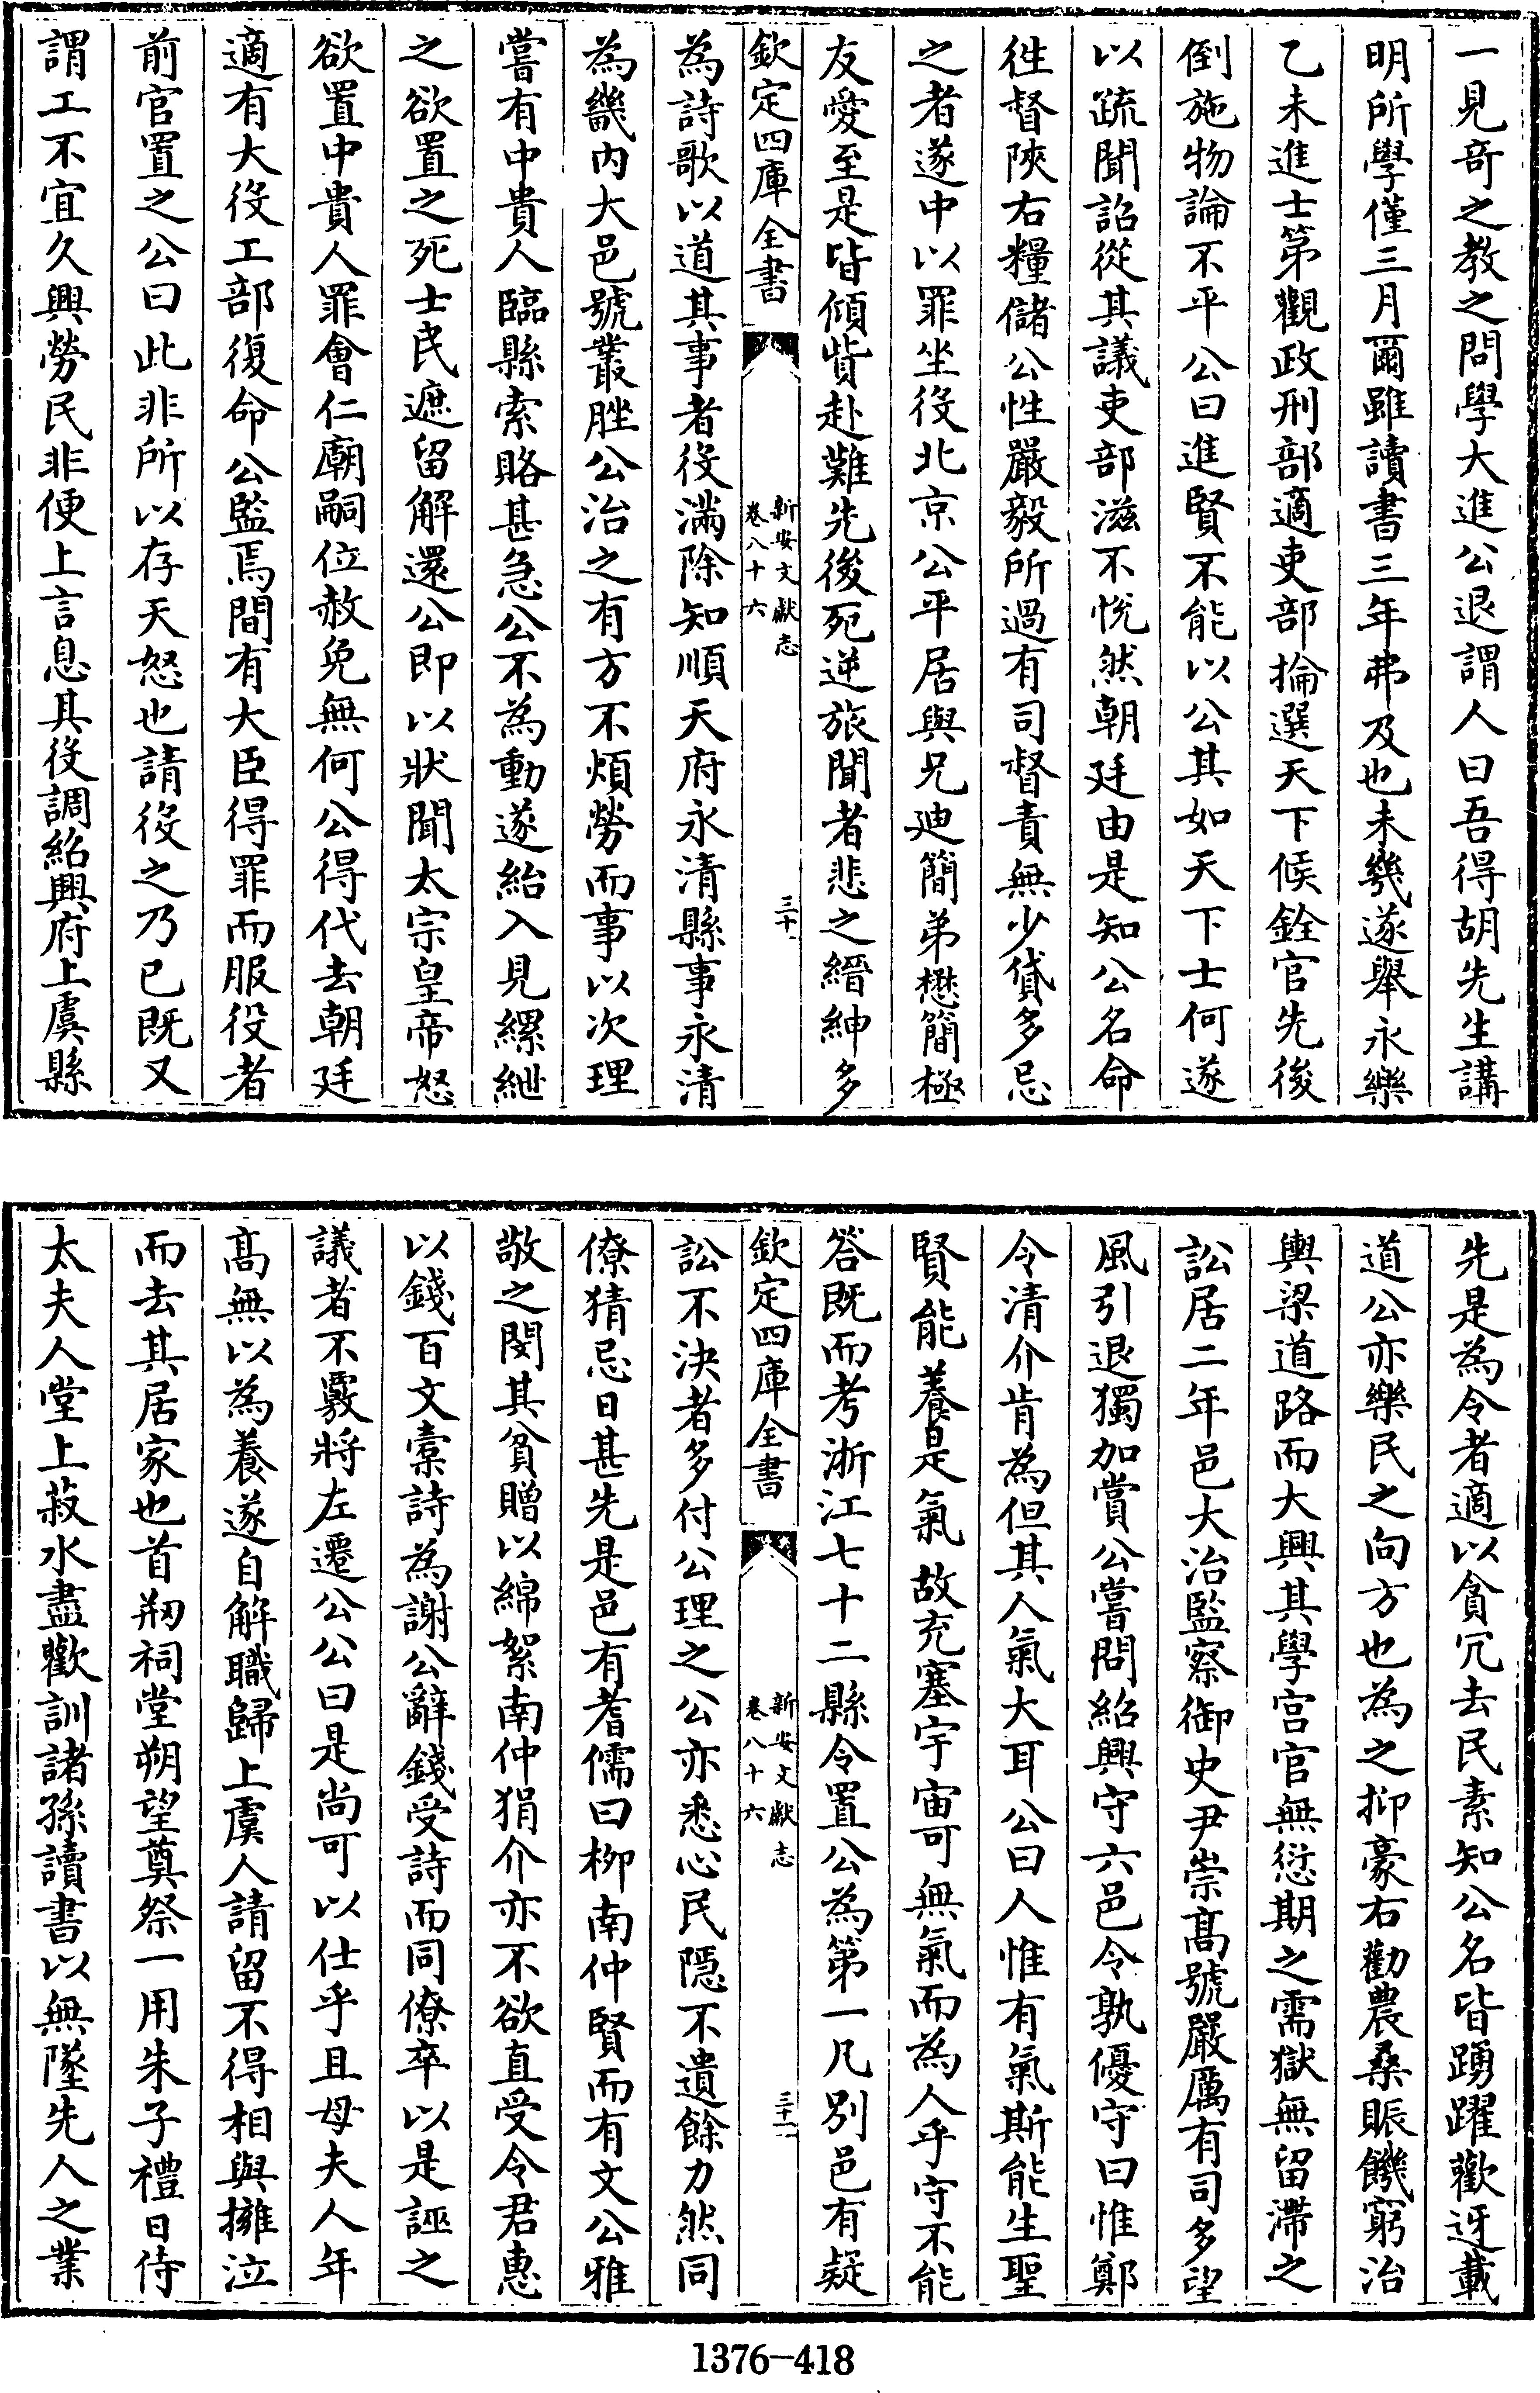 一見竒之教之問學大進公退謂人曰吾得胡先生講
明所學僅三月爾雖讀書三年弗及也未幾遂舉永樂
乙未進士第觀政刑部適吏部掄選天下候銓官先後
倒施物論不平公曰進賢不能以公其如天下士何遂
以疏聞詔從其議吏部滋不悅然朝廷由是知公名命
徃督陜右糧儲公性嚴毅所過有司督責無少貸多忌
之者遂中以罪坐役北京公平居與兄廸簡弟懋簡極
友愛至是皆傾貲赴難先後死逆旅聞者悲之縉紳多
欽定四庫全書
新安文獻志
卷八十六
三十
為詩歌以道其事者役滿除知順天府永清縣事永清
為畿内大邑號叢脞公治之有方不煩勞而事以次理
嘗有中貴人臨縣索賂甚急公不為動遂紿入見縲紲
之欲置之死士民遮留解還公即以狀聞太宗皇帝怒
欲置中貴人罪會仁廟嗣位赦免無何公得代去朝廷
適有大役工部復命公監焉間有大臣得罪而服役者
前官置之公曰此非所以存天怒也請役之乃已既又
謂工不宜久興勞民非便上言息其役調紹興府上虞縣
先是為令者適以貪冗去民素知公名皆踴躍歡迓載
道公亦樂民之向方也為之抑豪右勸農桑賑饑窮治
輿梁道路而大興其學宫官無愆期之需獄無留滯之
訟居二年邑大治監察御史尹崇高號嚴厲有司多望
風引退獨加賞公嘗問紹興守六邑令孰優守曰惟鄭
令清介肯為但其人氣大耳公曰人惟有氣斯能生聖
賢能養是氣故充塞宇宙可無氣而為人乎守不能
答既而考浙江七十二縣令置公為第一凡别邑有疑
欽定四庫全書
新安文獻志
卷八十六
三十一
訟不決者多付公理之公亦悉心民隠不遺餘力然同
僚猜忌日甚先是邑有耆儒曰柳南仲賢而有文公雅
敬之閔其貧贈以綿絮南仲狷介亦不欲直受令君惠
以錢百文橐詩為謝公辭錢受詩而同僚卒以是誣之
議者不覈將左遷公公曰是尚可以仕乎且母夫人年
髙無以為養遂自解職歸上虞人請留不得相與擁泣
而去其居家也首剏祠堂朔望奠祭一用朱子禮日侍
太夫人堂上菽水盡歡訓諸孫讀書以無墜先人之業
1376-418